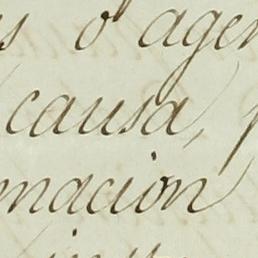 s o' agen
causa,
macion